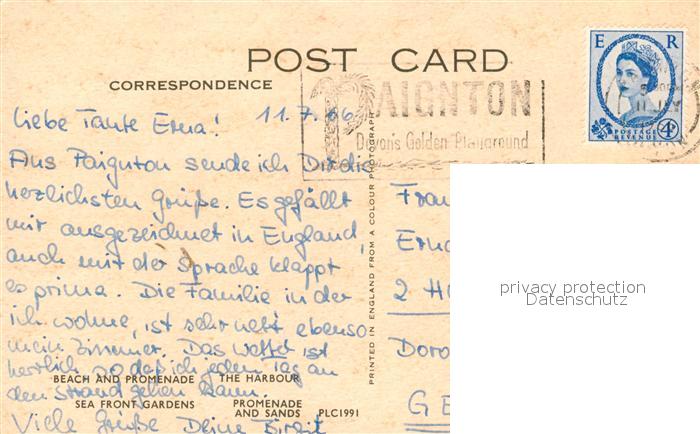 POST CARD
CORRESPONDENCE
E R
POSTAGE
REVENUE
4D
PAIGNTON
Devon's Golden Playground
Liebe Tante Erna! 11.7.66
Aus Paignton sende ich Dir die
herzlichsten Grüße. Es gefällt
mir ausgezeichnet in England,
auch mit der Sprache klappt
es prima. Die Familie in der
ich wohne, ist sehr nett ebenso
mein Zimmer. Das Wetter ist
herrlich so daß ich jeden Tag an
den Strand gehen kann.
Viele Grüße Deine Birgit
BEACH AND PROMENADE THE HARBOUR
SEA FRONT GARDENS PROMENADE
AND SANDS PLC1991
PRINTED IN ENGLAND FROM A COLOUR PHOTOGRAPH
Frau
Erna
2 H
Doro
GE
privacy protection
Datenschutz